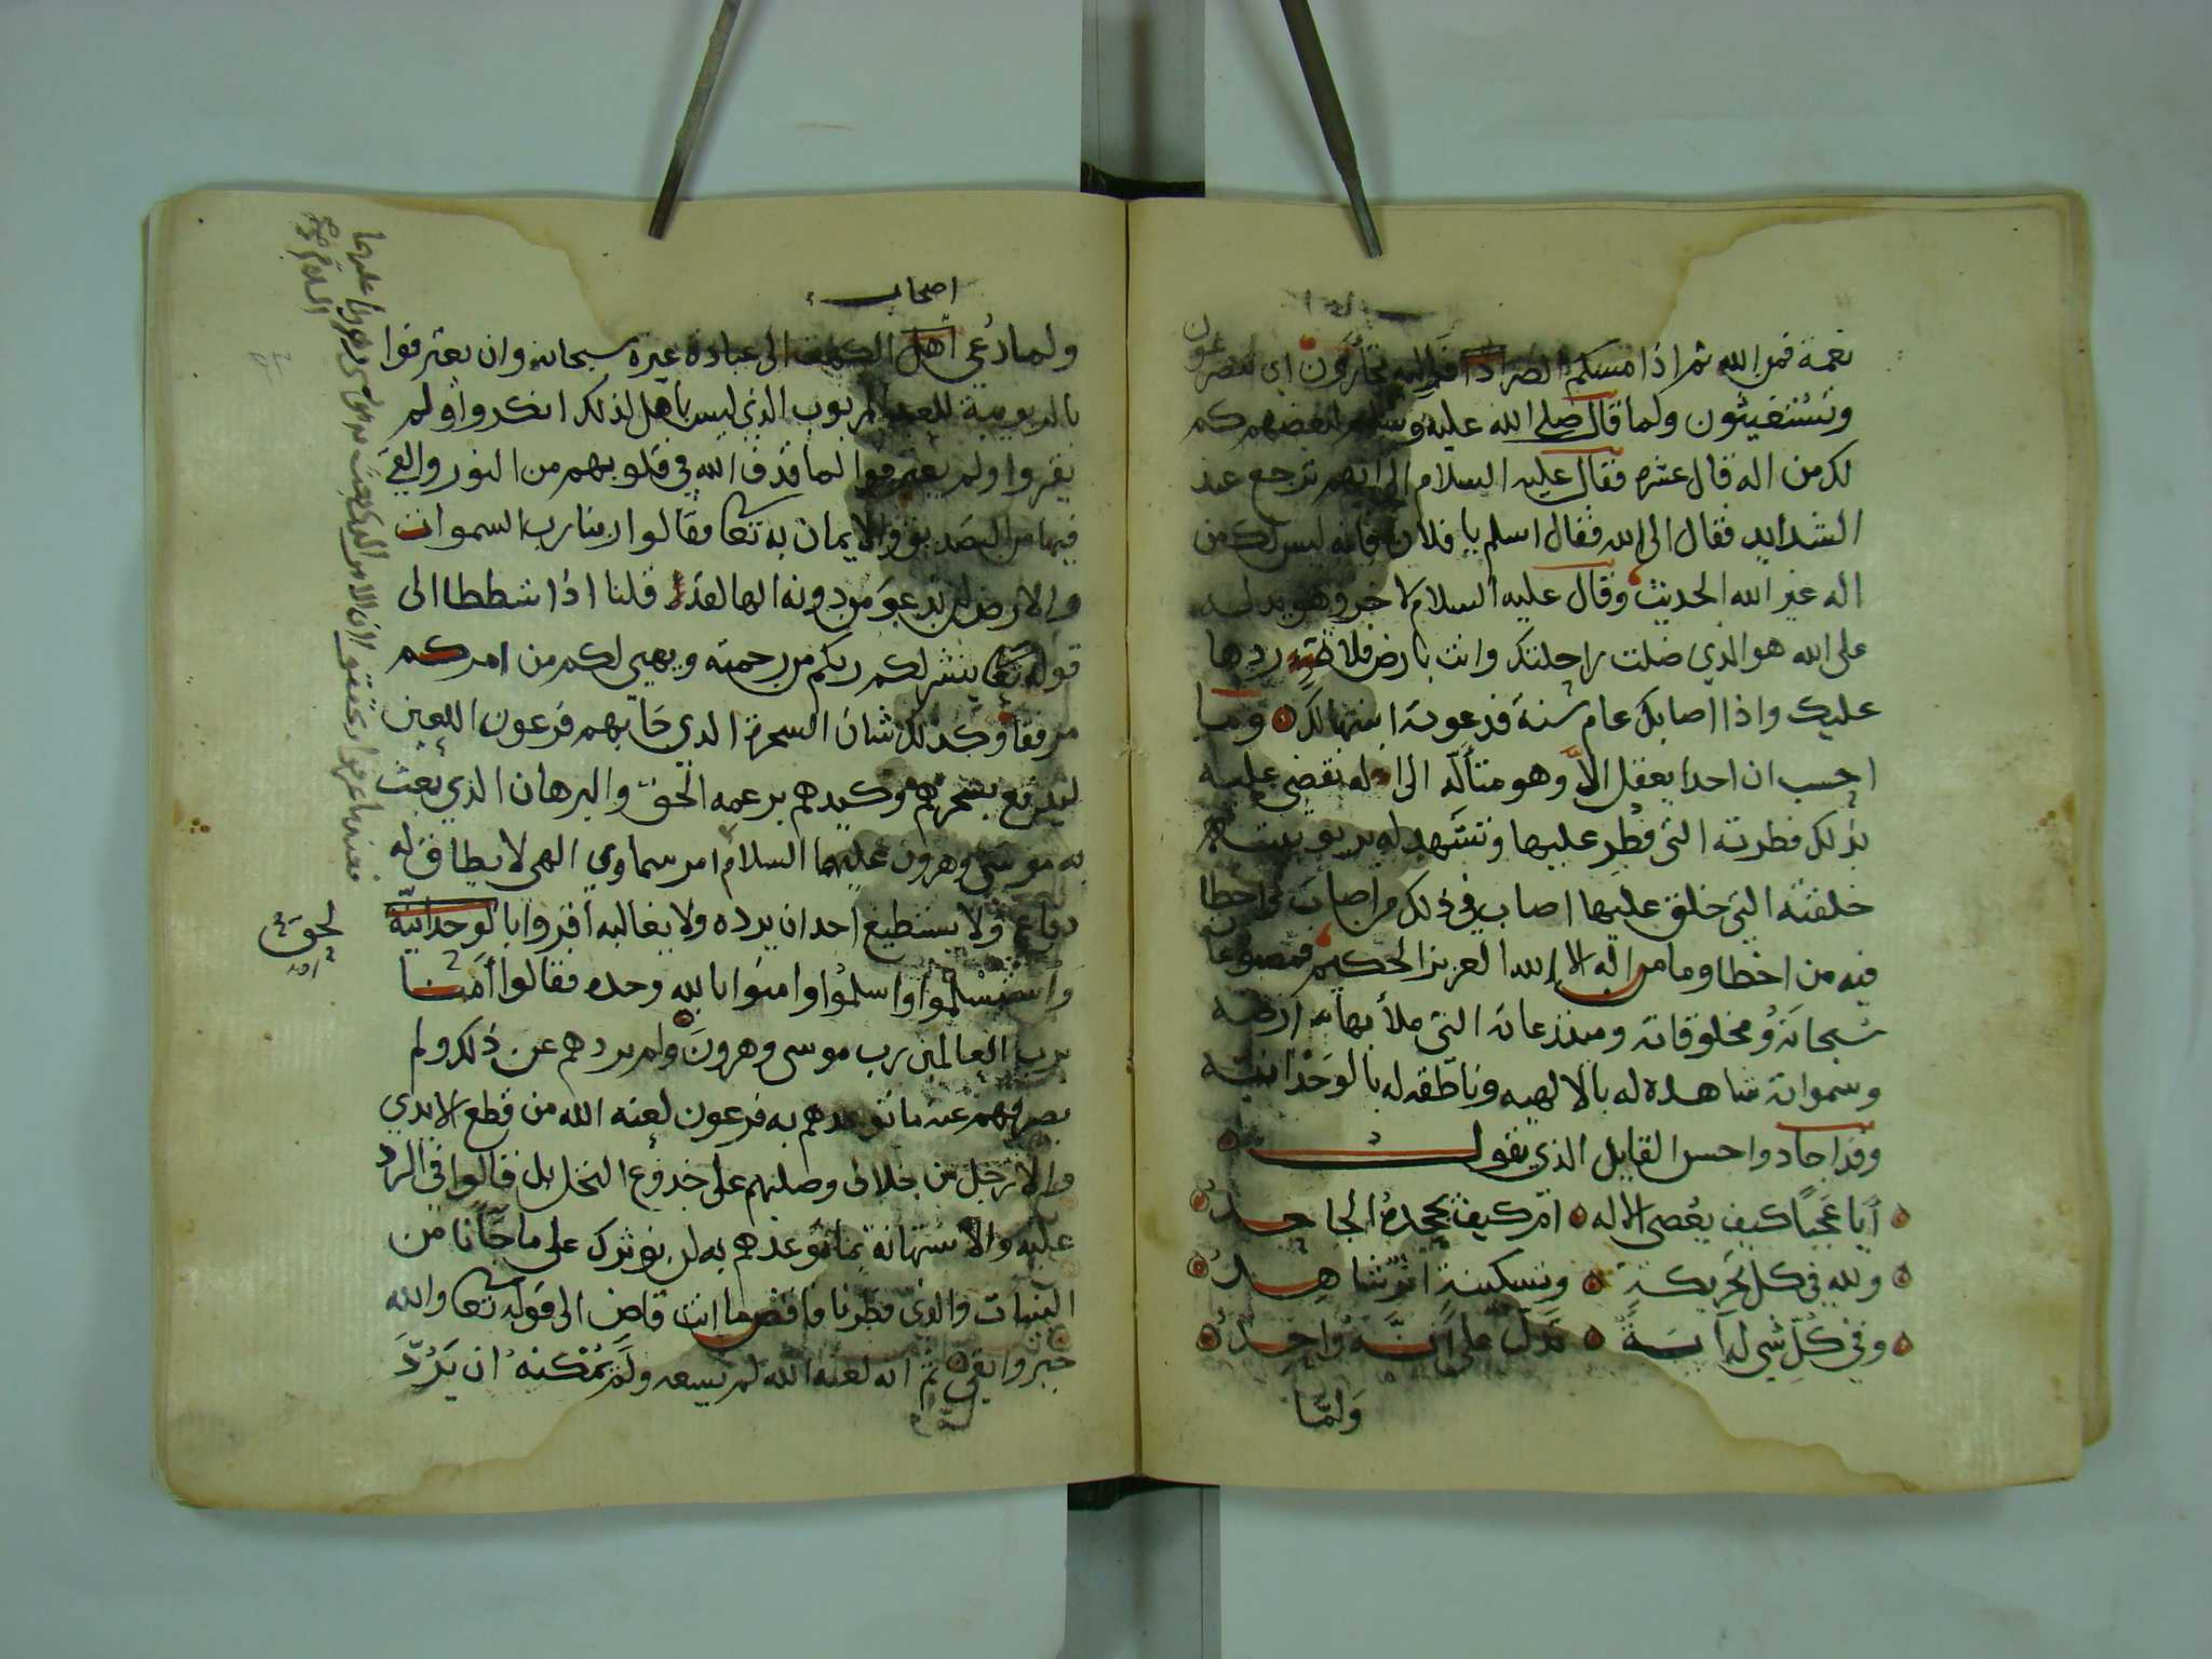 نعمة فمن الله ثم اذا مسكم الضر فاليه تجأرون اي تتضرعون
وتستغيثون ولما قال صلى الله عليه وسلم لبعضهم كم
لك من اله قال عشره فقال عليه السلام الى ايهم ترجع عند
الشدايد فقال الى الله فقال اسلم يا فلان فانه ليس لك من
اله غير الله الحديث وقال عليه السلام لاخر وهو يدله
على الله هو الذي ضلت راحلتك وانت بارض فلاة ردها
عليك واذا اصابك عام سنة فدعوته انبتها لك وما
احسب ان احدا يعقل الا وهو متأله الى اله تقضي عليه
بذلك فطرته التي فطر عليها وتشهد له بربوبيته
خلقته التي خلق عليها اصاب في ذلك من اصاب واخطا
فيه من اخطا وما من اله الا الله العزيز الحكيم فمصنوعات
سبحانه ومخلوقاته ومبتدعاته التي ملأ بها ارضه
وسمواته شاهده له بالالهيه وناطقه له بالوحدانيته
وقد اجاد واحسن القايل الذي يقول
أيا عجبا كيف يعصى الاله ام كيف يجحده الجاحد
ولله في كل تحريكة وتسكينة اثر شاهد
وفي كل شي له آية تدل على انه واحد
ولما
اصحاب
ولما دعي اهل الكهف الى عبادة غيره سبحانه وان يعترفوا
بالربوبية للعبد المربوب الذي ليس باهل لذلك انكروا ولم
يقروا ولم يعترفوا لما قذف الله في قلوبهم من النور والقى
فيها من التصديق والايمان به تعالى فقالوا ربنا رب السموات
والارض لن ندعو من دونه الها لقد قلنا اذا شططا الى
قوله تعالى ينشر لكم ربكم من رحمته ويهيي لكم من امركم
مرفقا وكذلك شان السحرة الذي جا بهم فرعون اللعين
ليدفع بسحرهم وكيدهم بزعمه الحق والبرهان الذي بعث
به موسى وهرون عليهما السلام امر سماوي الهي لا يطاق له
دفاع ولا يستطيع احد ان يرده ولا يغالبه اقروا بالوحدانية
واستسلموا واسلموا وامنوا بالله وحده فقالوا آمنا
برب العالمين رب موسى وهرون ولم يردهم عن ذلك ولم
يصرفهم عنه ما توعدهم به فرعون لعنه الله من قطع الايدي
والارجل من خلاف وصلبهم على جذوع النخل بل قالوا في الرد
عليه والاستهانة بما توعدهم به لن نوثرك على ما جانا من
البينات والذي فطرنا فاقض ما انت قاض الى قوله تعالى والله
خير وابقى ثم انه لعنه الله لم يسعه ولم يمكنه ان يرد